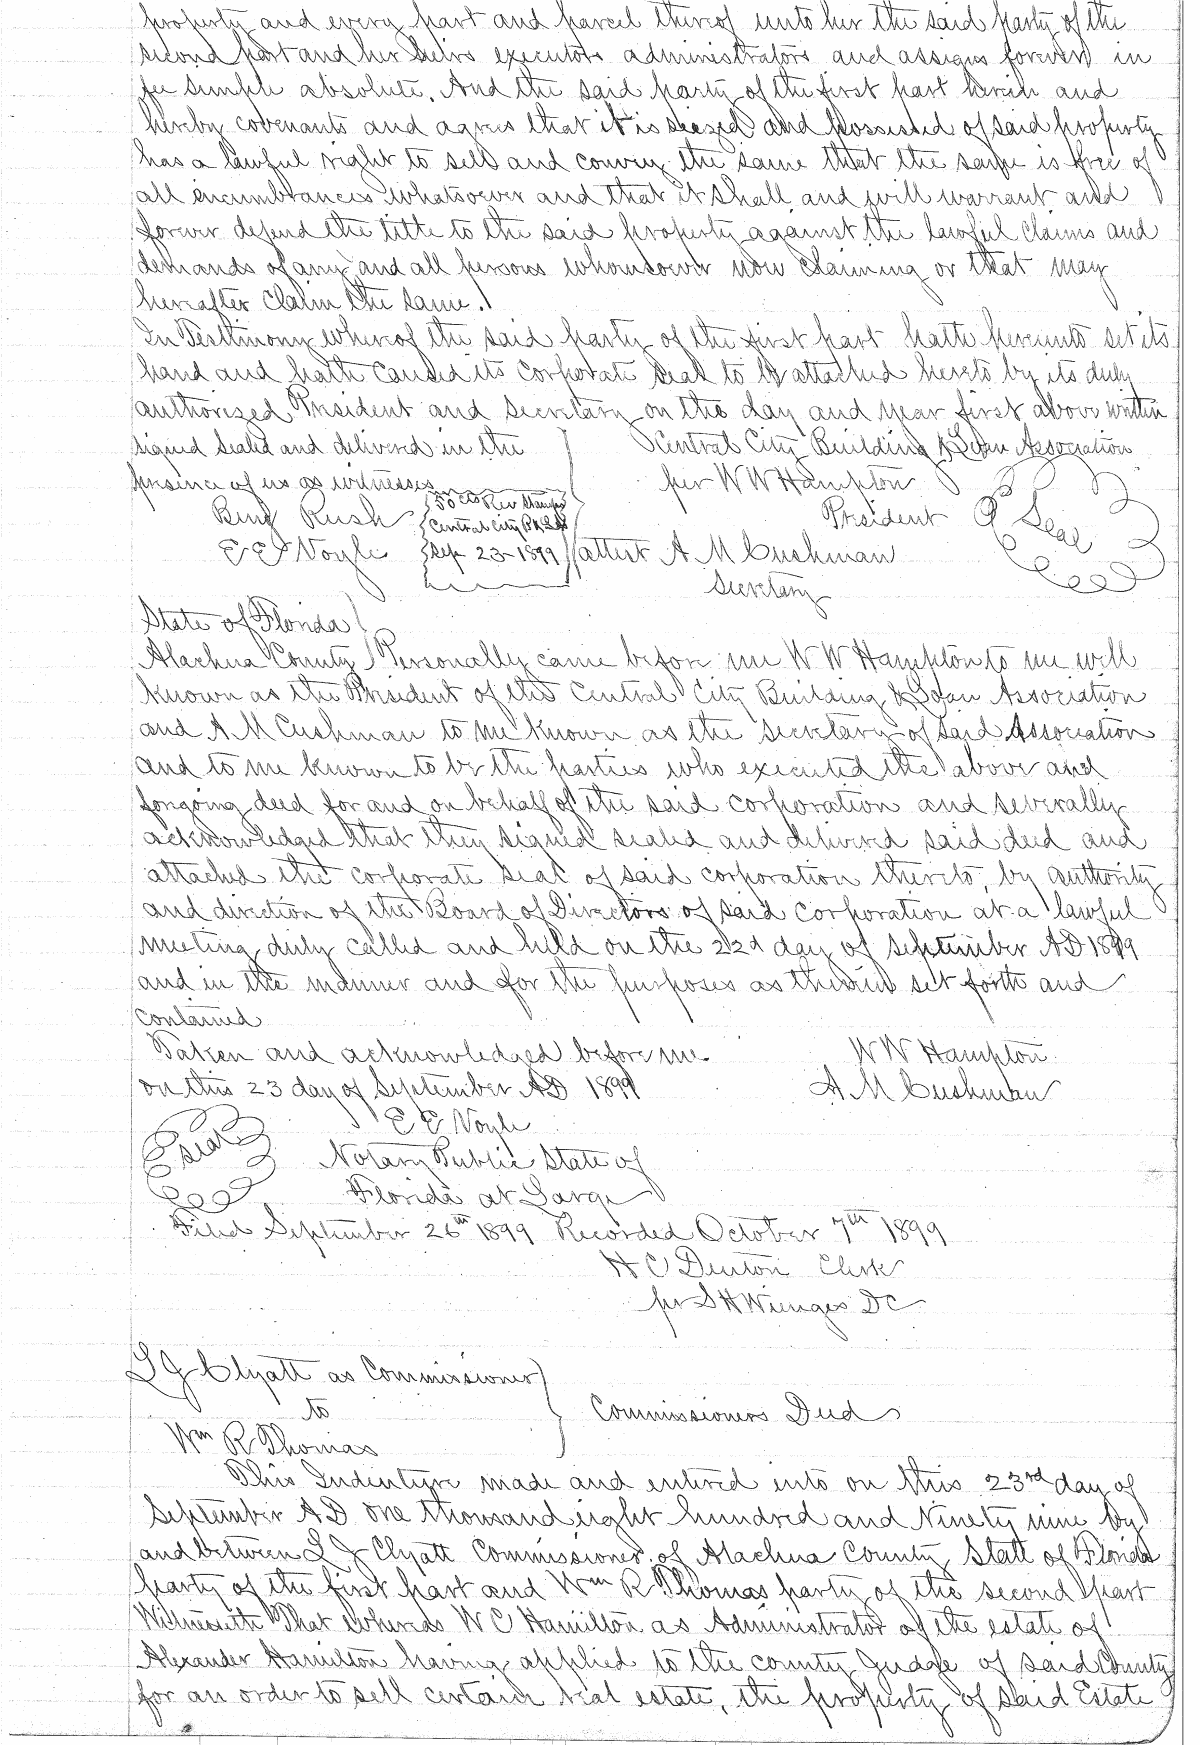 property and every part and parcel thereof unto her the said party of the
second part and her heirs executors administrators and assigns forever in
fee simple absolute. And the said party of the first part herein and
hereby covenants and agrees that it is siezed and possessed of said property
has a lawful right to sell and convey the same that the same is free of
all incumbrances whatsoever and that it shall and will warrant and
forever defend the title to the said property against the lawful claims and
demands of any and all persons whomsoever now claiming or that may
hereafter claim the same.
In Testimony whereof the said party of the first part hath hereunto set its
hand and hath caused its corporate seal to be attached hereto by its duly
authorized President and secretary on the day and year first above written
signed sealed and delivered in the Central City Building & Loan Association
presence of us as witnesses per W W Hampton
Benj Rush 50 cts Rev Stamps President Seal
Central City B & L A
E E Voyle Sep 23-1899 attest A M Cushman
Secretary
State of Florida
Alachua County Personally came before me W W Hampton to me well
known as the President of the Central City Building & Loan Association
and A M Cushman to me known as the secretary of said Association
and to me known to be the parties who executed the above and
forgoing deed for and on behalf of the said corporation and severally
acknowledged that they signed sealed and delivered said deed and
attached the corporate seal of said corporation thereto, by authority
and direction of the Board of Directors of said corporation at a lawful
meeting duly called and held on the 22d day of september AD 1899
and in the manner and for the purposes as therein set forth and
contained
Taken and acknowledged before me W W Hampton
on this 23 day of September AD 1899 A M Cushman
E E Voyle
seal Notary Public State of
Florida at Large
Filed September 26th 1899 Recorded October 7th 1899
H C Denton Clerk
per S H Wienges DC
L J Clyatt as Commissioner
to Commissioners Deed
Wm R Thomas
This Indenture made and entered into on this 23rd day of
September AD one thousand eight hundred and Ninety nine by
and between L J Clyatt Commissioner of Alachua County State of Florida
party of the first part and Wm R Thomas party of the second part
Witnesseth That whereas W C Hamilton as Administrator of the estate of
Alexander Hamilton having applied to the county Judge of said County
for an order to sell certain real estate, the property of said Estate